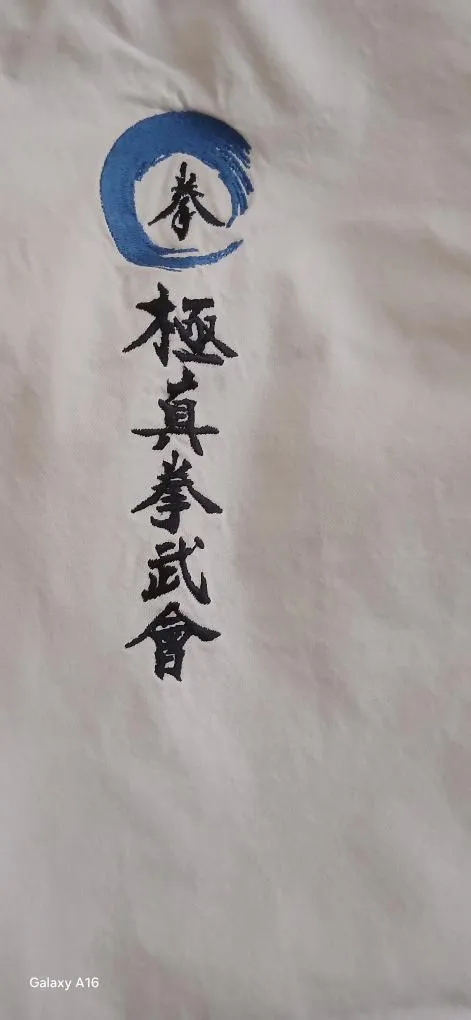 拳
極真拳武會
Galaxy A16